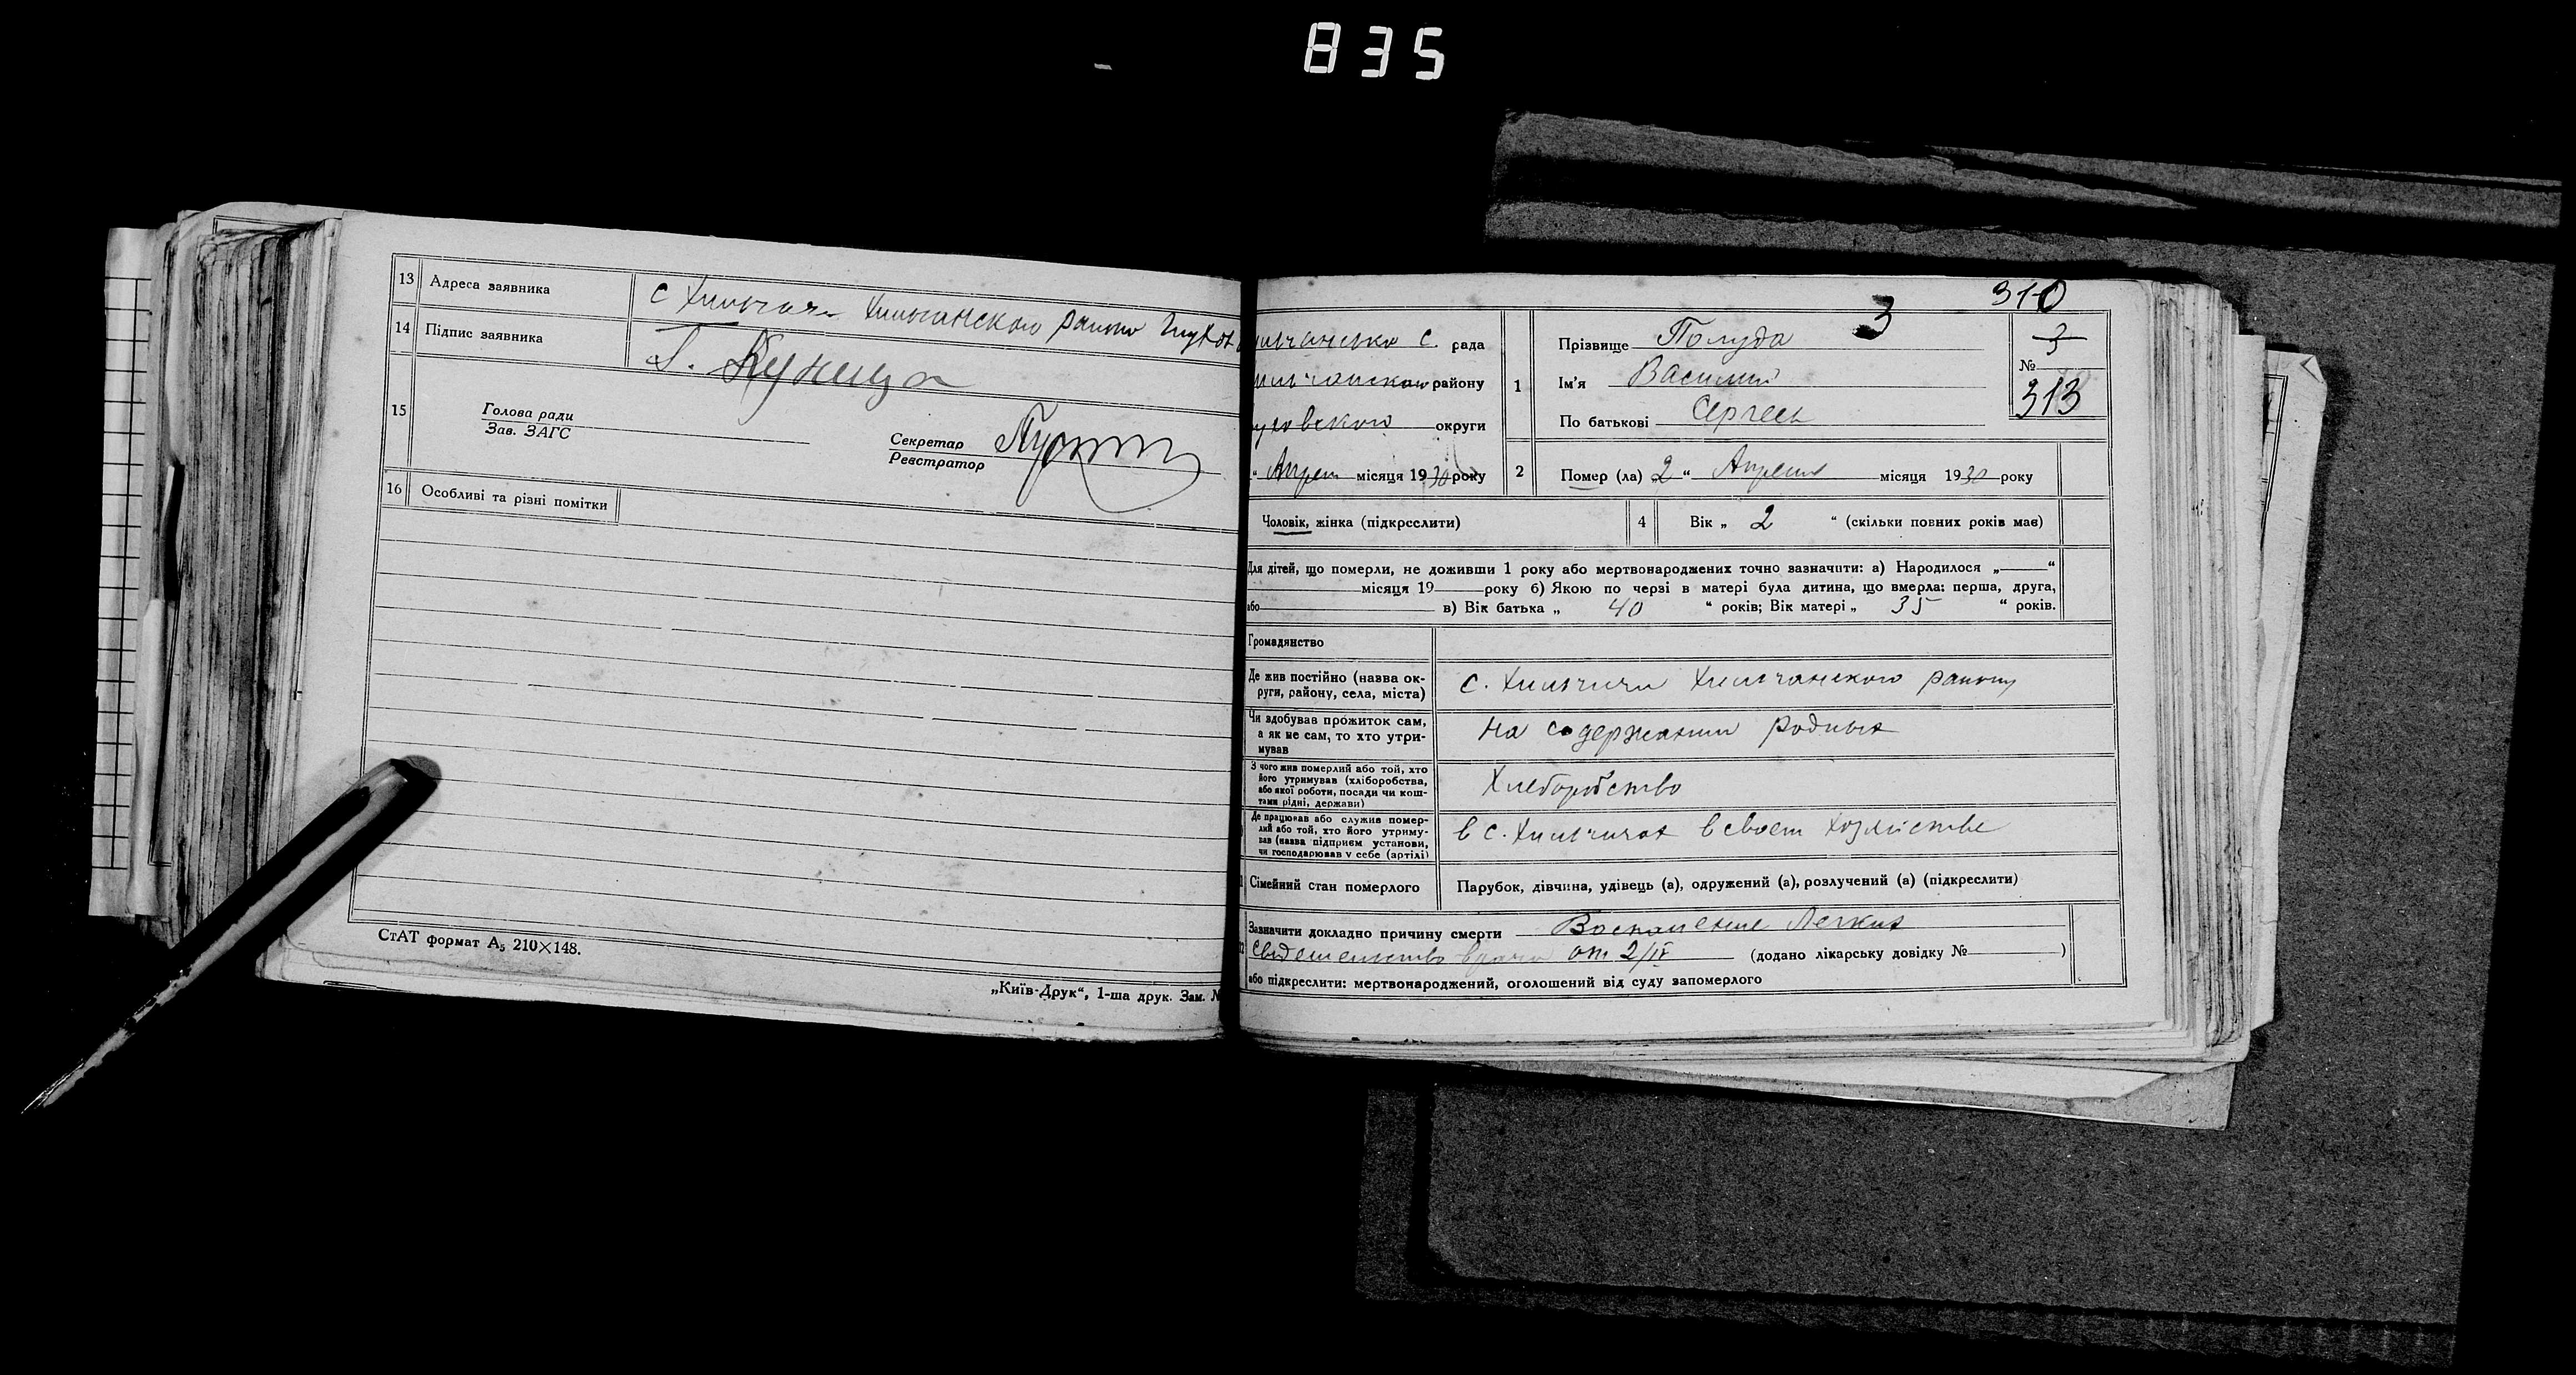 835
13 Адреса заявника с Хильчичи Хильчанского района Глухов
14 Підпис заявника Куница
15 Голова ради
Зав. ЗАГС
Секретар
Реєстратор
16 Особливі та різні помітки
СтАТ формат А5 210×148.
„Київ-Друк“, 1-ша друк. Зам. №
310
3
ильчанська с. рада
ильчанского району
уховского округи
“ Апреля місяця 1930 року
1 Прізвище Полуда
Ім'я Василий
По батькові Сергеев
3
№
313
2 Помер (ла) 2 “ Апреля місяця 1930 року
Чоловік, жінка (підкреслити)
4 Вік „ 2 “ (скільки повних років має)
Для дітей, що померли, не доживши 1 року або мертвонароджених точно зазначити: а) Народилося „ “
місяця 19 року б) Якою по черзі в матері була дитина, що вмерла: перша, друга,
або в) Вік батька „ 40 “ років; Вік матері „ 35 “ років.
Громадянство
Де жив постійно (назва ок-
руги, району, села, міста) с. Хильчичи Хильчанского району
Чи здобував прожиток сам,
а як не сам, то хто утри-
мував на содержании родных
З чого жив померлий або той, хто
його утримував (хліборобства,
або якої роботи, посади чи кош-
тами рідні, держави) Хлеборобство
Де працював або служив помер-
лий або той, хто його утриму-
вав (назва підприєм установи,
чи господарював у себе (артілі) в с. Хильчичах в своем хозяйстве
Сімейний стан померлого Парубок, дівчина, удівець (а), одружений (а), розлучений (а) (підкреслити)
Зазначити докладно причину смерти Воспаление Легких
свидетельство врача от 2/IV (додано лікарську довідку № )
або підкреслити: мертвонароджений, оголошений від суду запомерлого